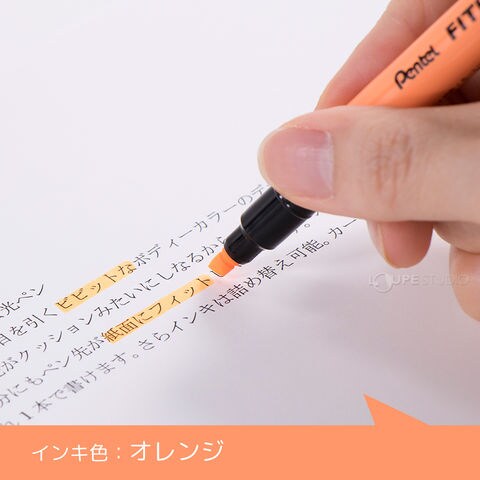 Pentel FIT
LOUPE STUDIO
光ペン
目を引くビビットなボディーカラーのデ
先がクッションみたいにしなるから
分にもペン先が紙面にフィット
1本で書けます。さらインキは詰め替え可能。カー
インキ色：オレンジ